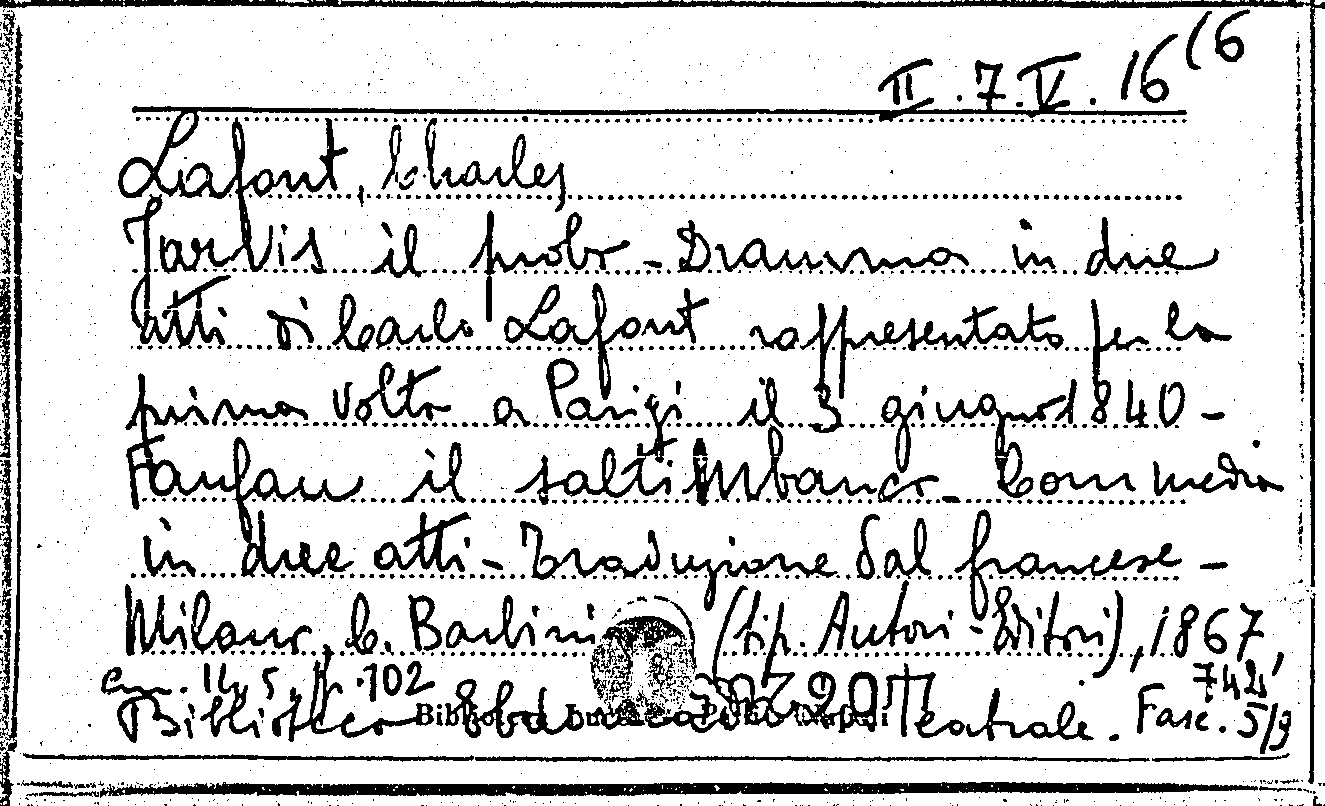 II.7.V.16 (6
Lafont, Charles
Jarvis il probo - Dramma in due
atti di Carlo Lafont rappresentato per la
prima volta a Parigi il 3 giugno 1840 -
Fanfan il saltimbanco - Commedia
in due atti - Traduzione dal francese -
Milano, C. Barbini (tip. Autori-Editori), 1867,
cm. 14,5, p. 102
Biblioteca Ebdomadaria Teatrale. Fasc. 742
5/3